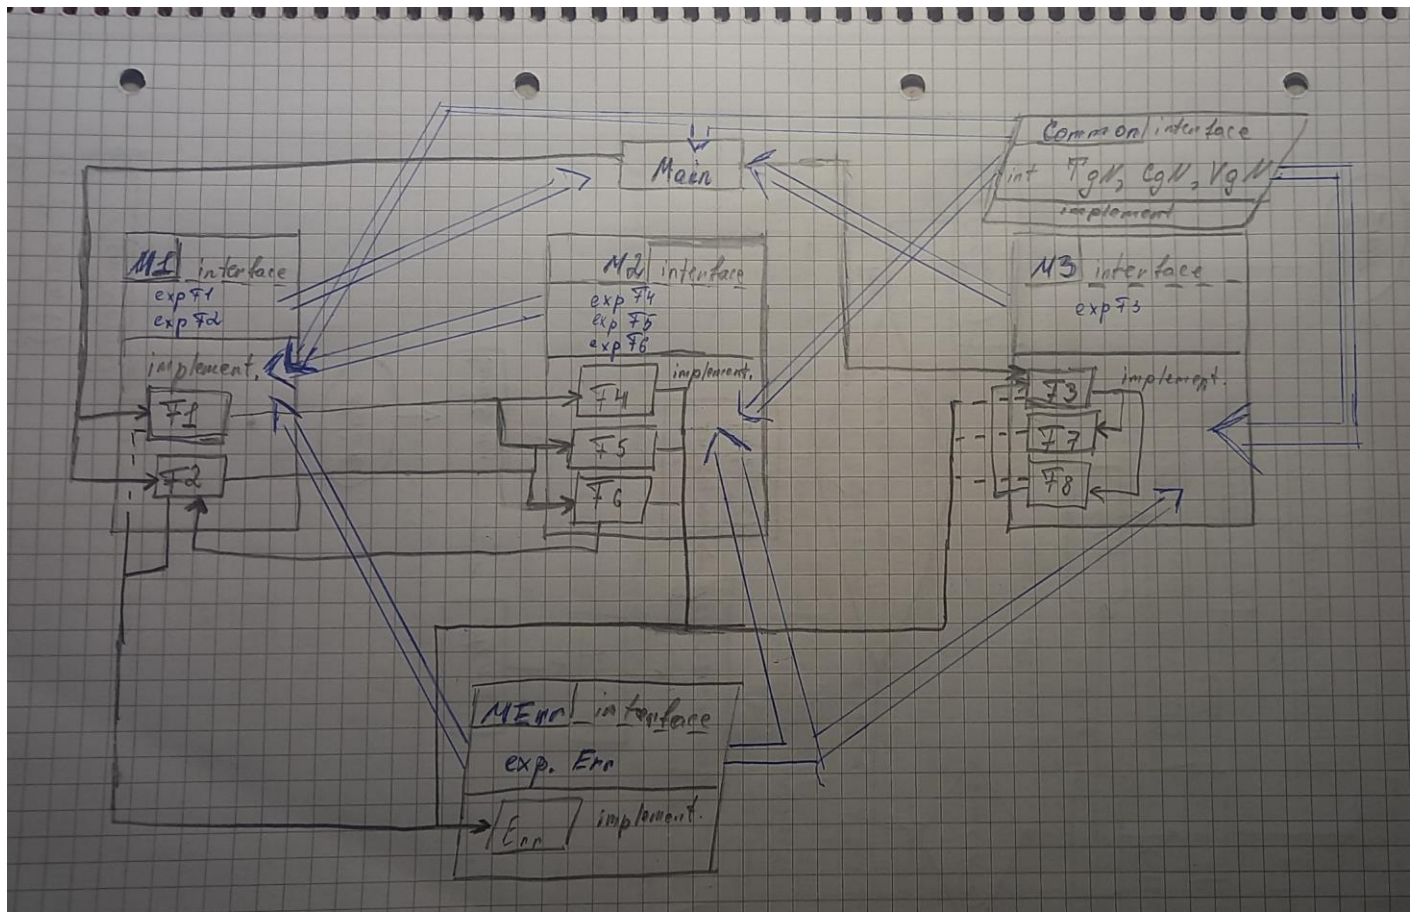 Common interface
int TgN, CgN, VgN
implement
Main
M1 interface
exp F1
exp F2
implement.
F1
F2
M2 interface
exp F4
exp F5
exp F6
implement.
F4
F5
F6
M3 interface
exp F3
implement.
F3
F7
F8
MErr interface
exp. Err
Err implement.